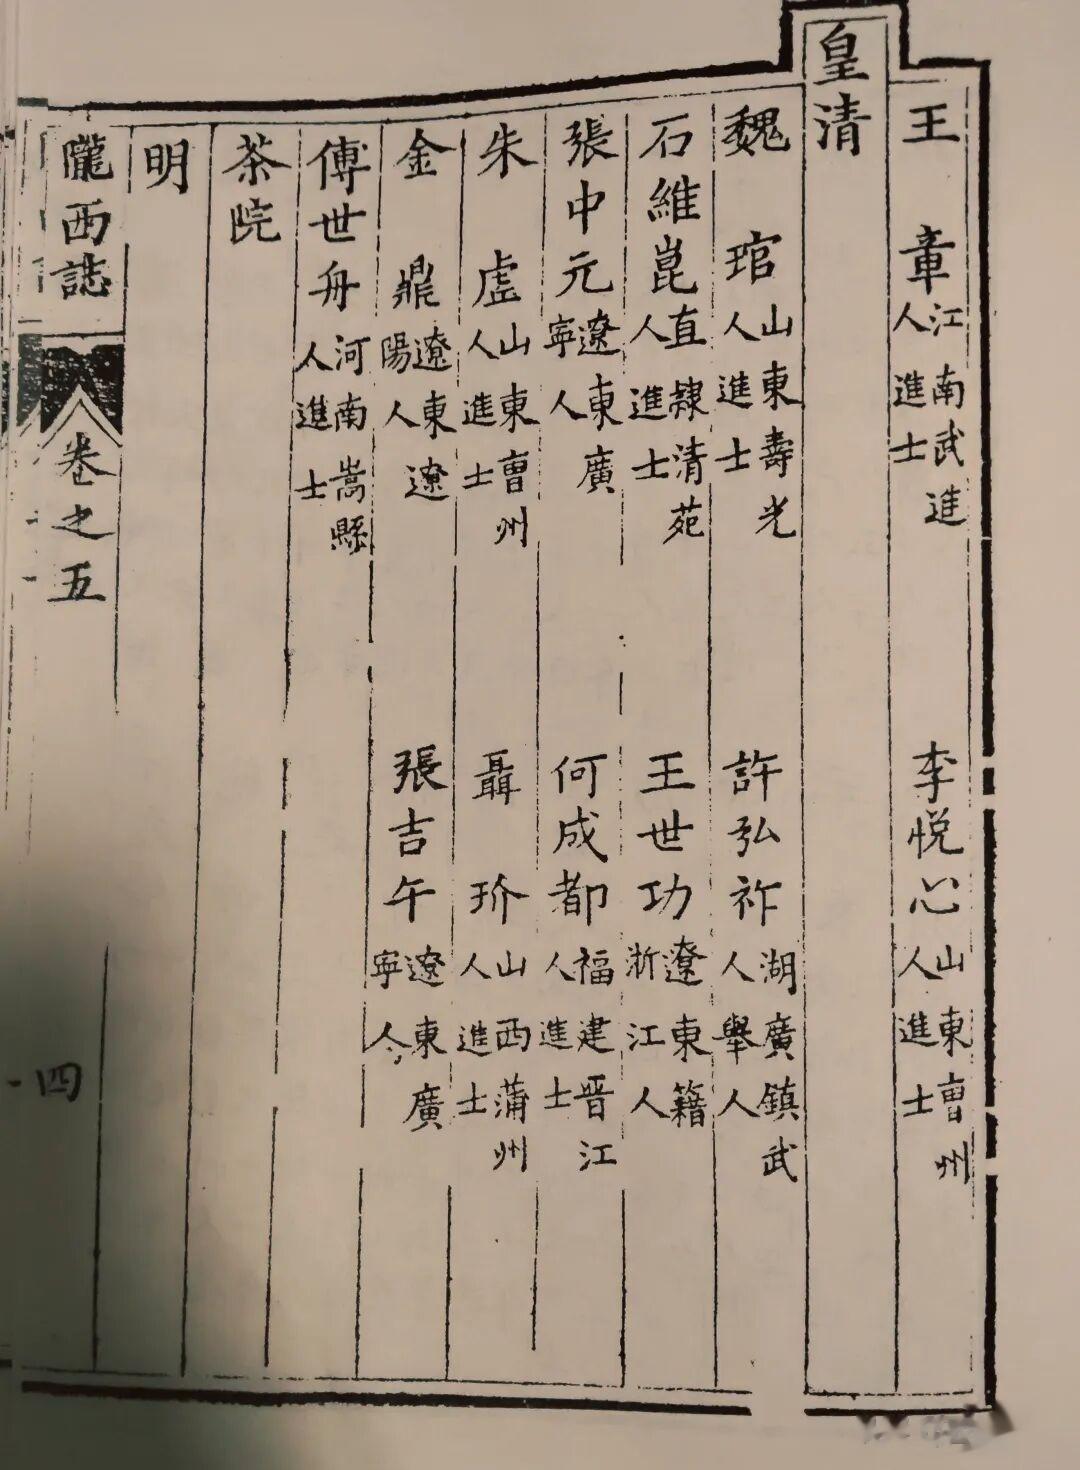 王　章江南武進人進士　李悅心山東曹州人進士
皇清
魏　琯山東壽光人進士　許弘祚湖廣鎮武人舉人
石維崑直隸清苑人進士　王世功遼東籍浙江人
張中元遼東廣寧人　何成都福建晉江人進士
朱　虛山東曹州人進士　聶　玠山西蒲州人進士
金　鼎遼東遼陽人　張吉午遼東廣寧人
傅世舟河南嵩縣人進士
茶院
明
隴西誌　卷之五　四